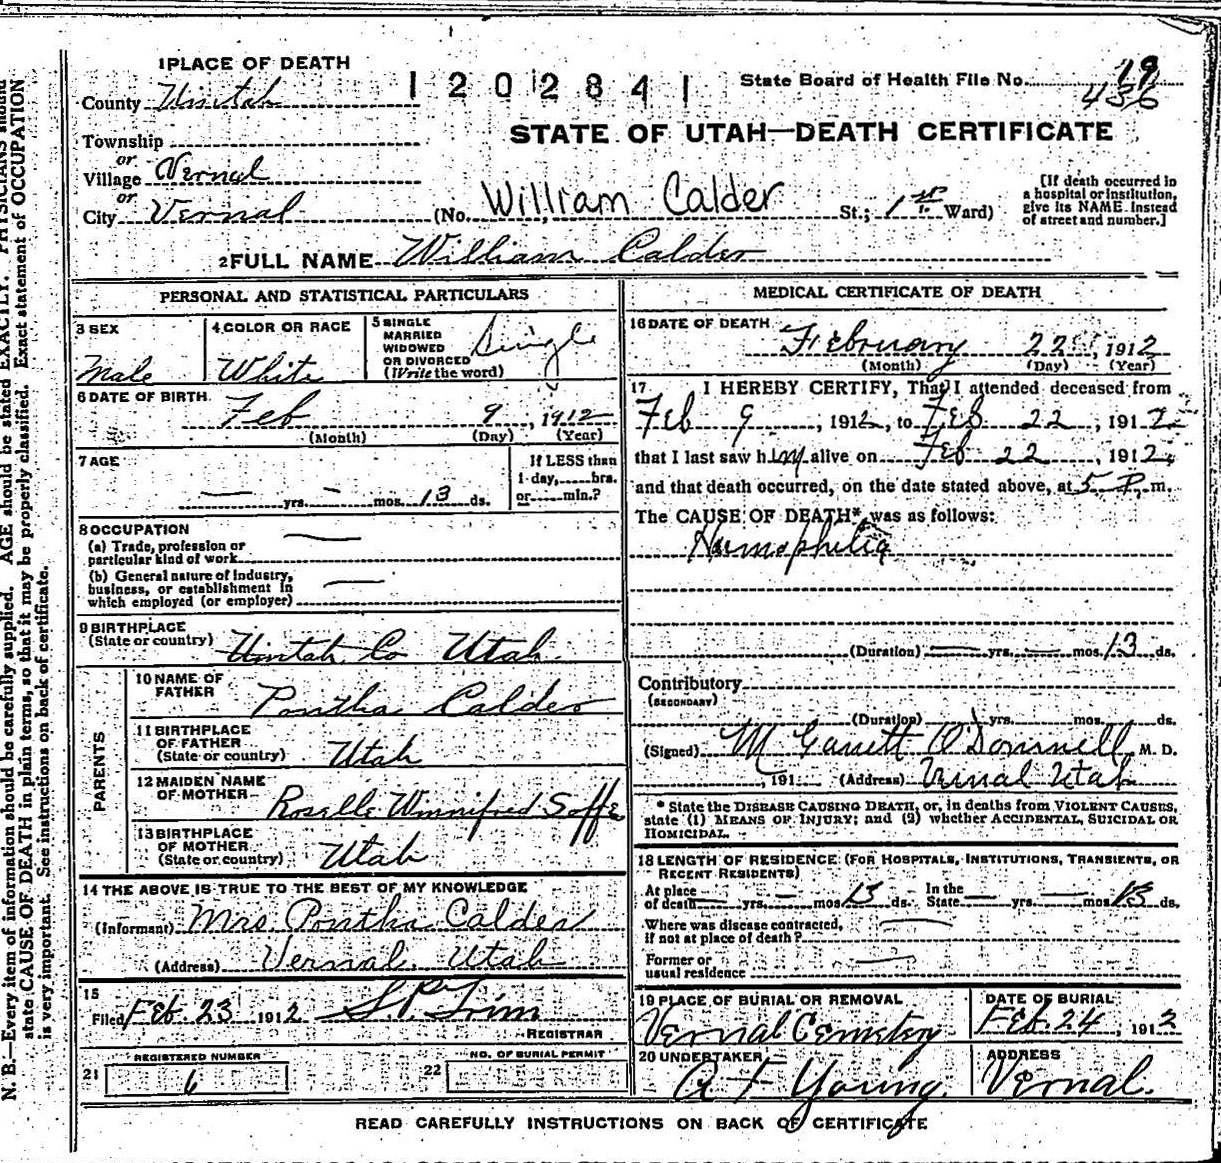 N. B.—Every item of information should be carefully supplied. AGE should be stated EXACTLY. PHYSICIANS should
state CAUSE OF DEATH in plain terms, so that it may be properly classified. Exact statement of OCCUPATION
is very important. See instructions on back of certificate.
1 PLACE OF DEATH
1202841
State Board of Health File No. 19
436
County Uintah
STATE OF UTAH—DEATH CERTIFICATE
Township
or
Village Vernal
or
City Vernal (No. William Calder St.; 1st Ward)
[If death occurred in
a hospital or institution,
give its NAME instead
of street and number.]
2 FULL NAME William Calder
PERSONAL AND STATISTICAL PARTICULARS
3 SEX
Male
4 COLOR OR RACE
White
5 SINGLE
MARRIED
WIDOWED
OR DIVORCED
(Write the word)
Single
6 DATE OF BIRTH
Feb 9, 1912
(Month) (Day) (Year)
7 AGE
— yrs. — mos. 13 ds.
If LESS than
1 day, hrs.
or min.?
8 OCCUPATION
(a) Trade, profession or
particular kind of work —
(b) General nature of Industry,
business, or establishment in
which employed (or employer) —
9 BIRTHPLACE
(State or country) Uintah Co Utah
PARENTS
10 NAME OF
FATHER
Pontha Calder
11 BIRTHPLACE
OF FATHER
(State or country) Utah
12 MAIDEN NAME
OF MOTHER
Rosella Winnifred Soffe
13 BIRTHPLACE
OF MOTHER
(State or country) Utah
14 THE ABOVE IS TRUE TO THE BEST OF MY KNOWLEDGE
(Informant) Mrs. Pontha Calder
(Address) Vernal, Utah
15
Filed Feb. 23 1912
REGISTRAR
REGISTERED NUMBER
21 6
NO. OF BURIAL PERMIT
22
MEDICAL CERTIFICATE OF DEATH
16 DATE OF DEATH
February 22, 1912
(Month) (Day) (Year)
17 I HEREBY CERTIFY, That I attended deceased from
Feb 9, 1912, to Feb 22, 1912
that I last saw him alive on Feb 22, 1912,
and that death occurred, on the date stated above, at 5 P. m.
The CAUSE OF DEATH* was as follows:
Haemophilia
(Duration) — yrs. — mos. 13 ds.
Contributory
(SECONDARY)
(Duration) yrs. mos. ds.
(Signed) M Garrett O'Donnell, M. D.
, 191 (Address) Vernal Utah
* State the DISEASE CAUSING DEATH, or, in deaths from VIOLENT CAUSES,
state (1) MEANS OF INJURY; and (2) whether ACCIDENTAL, SUICIDAL OR
HOMICIDAL.
18 LENGTH OF RESIDENCE (FOR HOSPITALS, INSTITUTIONS, TRANSIENTS, OR
RECENT RESIDENTS)
At place
of death — yrs. — mos 13 ds. In the
State — yrs. — mos 13 ds.
Where was disease contracted,
if not at place of death? —
Former or
usual residence —
19 PLACE OF BURIAL OR REMOVAL
Vernal Cemetery
DATE OF BURIAL
Feb. 24, 1912
20 UNDERTAKER
A F Young.
ADDRESS
Vernal.
READ CAREFULLY INSTRUCTIONS ON BACK OF CERTIFICATE